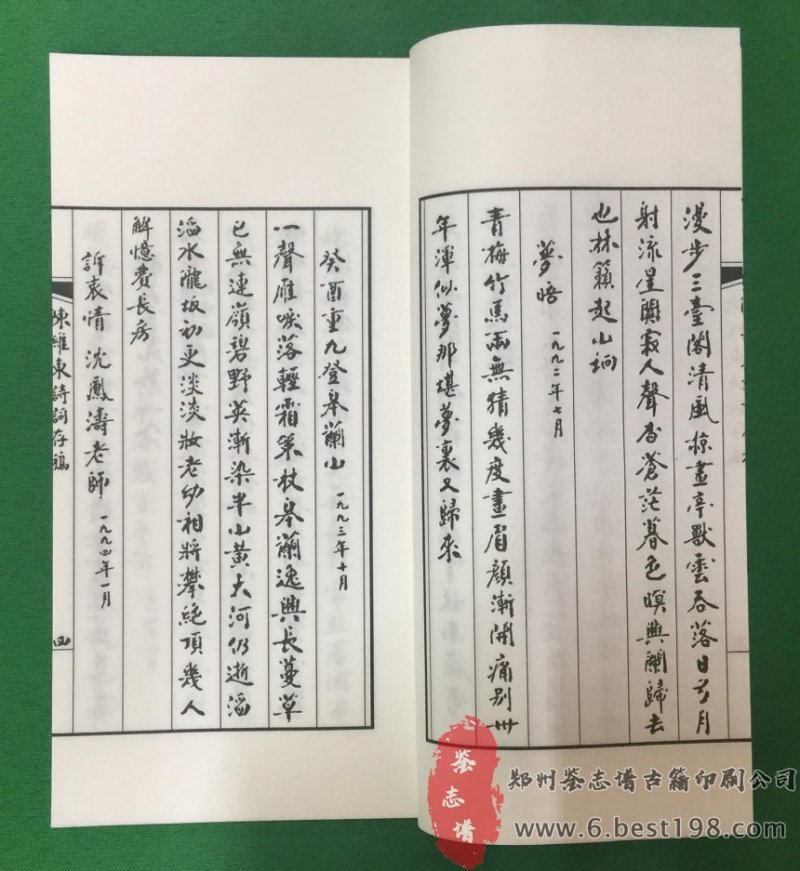 漫步三臺閣清風掠畫亭獸雲吞落日芎月
射流星闃寂人聲杳蒼茫暮色暝興闌歸去
也林籟起山坰
夢悟 一九九二年七月
青梅竹馬兩無猜幾度畫眉顏漸開痛別卅
年渾似夢那堪夢裏又歸來
癸酉重九登皋蘭山 一九九三年十月
一聲雁唳落輕霜策杖皋蘭逸興長蔓草
已無連嶺碧野英漸染半山黃大河仍逝滔
滔水隴坂初更淡淡妝老幼相將攀絕頂幾人
解憶費長房
訴衷情 沈鳳濤老師 一九九四年一月
陳維東詩詞存稿
四
鉴志谱
郑州鉴志谱古籍印刷公司
www.6.best198.com